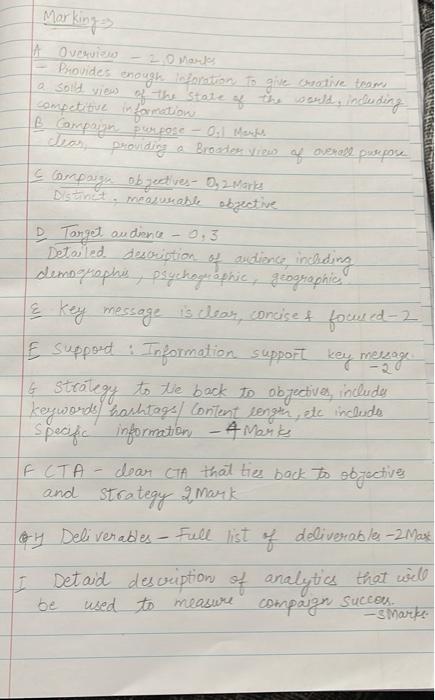 Marking =>
A Overview - 2.0 Marks
- Provides enough inforation to give creative team
a solid view of the state of the world, including
competitive information
B Campaign purpose - 0.1 Marks
clear, providing a Broader view of overall purpose
C Campaign objectives - 0,2 Marks
Distinct, measurable objective
D Target audience - 0.3
Detailed description of audience, including
demographic, psychographic, geographics
E Key message is clear, concise & focused - 2
F Support : Information support key message.
- 2
G Strategy to tie back to objectives, includes
keywords/ hashtags/ Content length, etc includes
specific information - 4 Marks
F CTA - clear CTA that ties back to objectives
and strategy 2 Mark
H Deliverables - Full list of deliverables - 2 Mark
I Detaid description of analytics that will
be used to measure campaign success.
- 3 Marks